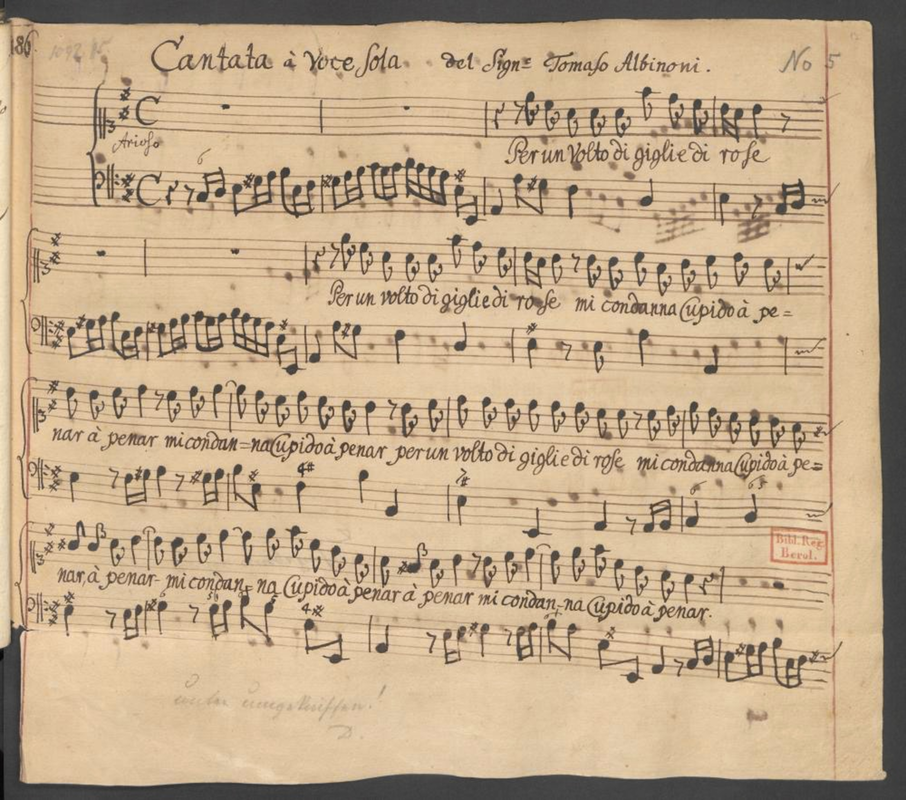 186.
Cantata à Voce Sola del Sign.re Tomaso Albinoni. No 5
Arioso
6
Per un Volto di giglie di rose
Per un volto di giglie di rose mi condanna Cupido à pe=
nar à penar mi condan=na Cupido à penar per un volto di giglie di rose mi condanna Cupido à pe=
nar, à penar mi condan=na Cupido à penar à penar mi condan=na Cupido à penar.
Bibl. Reg.
Berol.